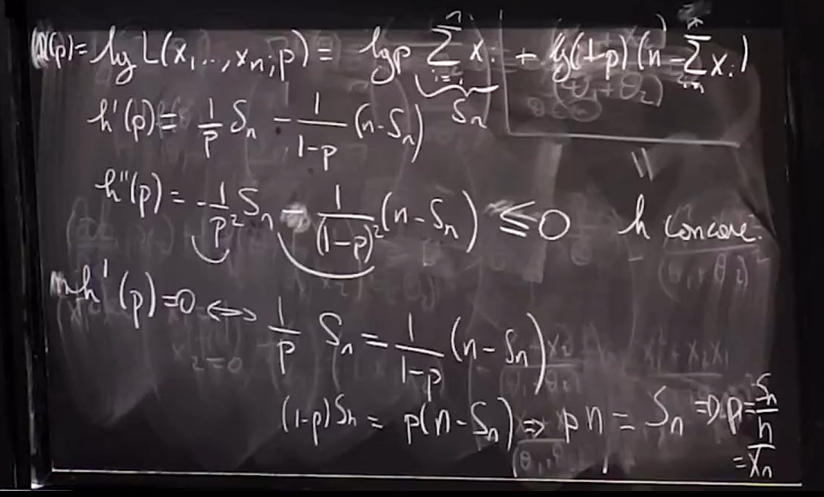 h(p) = lg L(x₁, .., xₙ; p) = lg p Σᵢ₌₁ⁿ xᵢ + lg(1-p) (n - Σᵢ₌₁ⁿ xᵢ)
Sₙ
h'(p) = 1/p Sₙ - 1/(1-p) (n - Sₙ)
h''(p) = -1/p² Sₙ - 1/(1-p)² (n - Sₙ) ≤ 0 h concave.
h'(p) = 0 ⇔ 1/p Sₙ = 1/(1-p) (n - Sₙ)
(1-p) Sₙ = p(n - Sₙ) ⇒ pn = Sₙ ⇒ p = Sₙ/n
= X̄ₙ